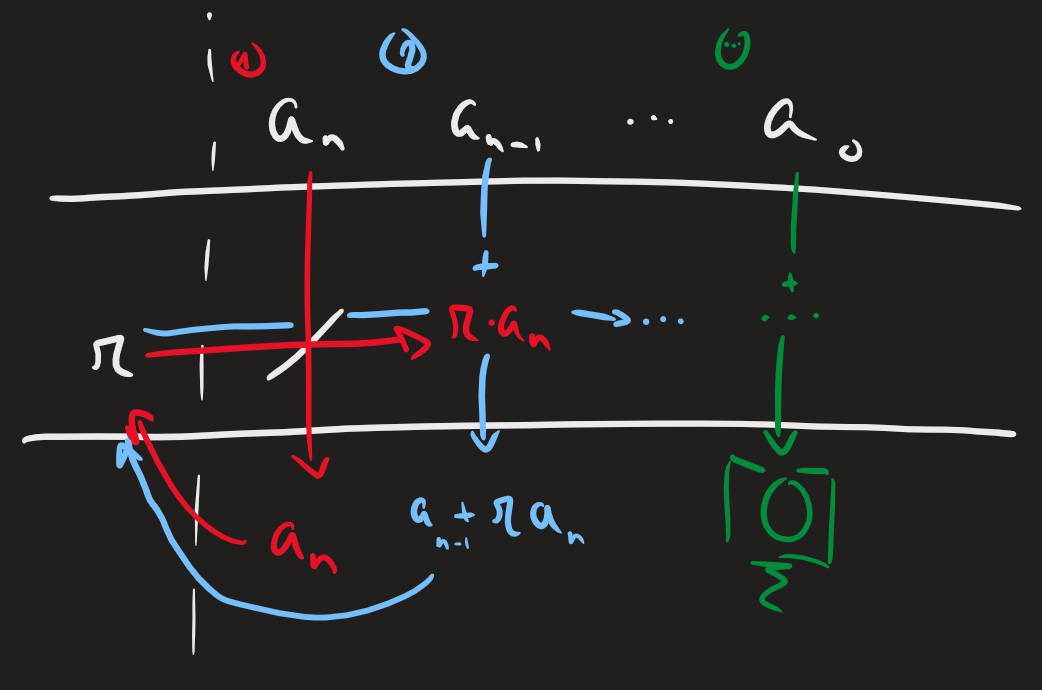 ① ② ⋯
aₙ aₙ₋₁ ⋯ a₀
+ +
r r·aₙ → ⋯ ⋯
aₙ aₙ₋₁ + r aₙ [0]